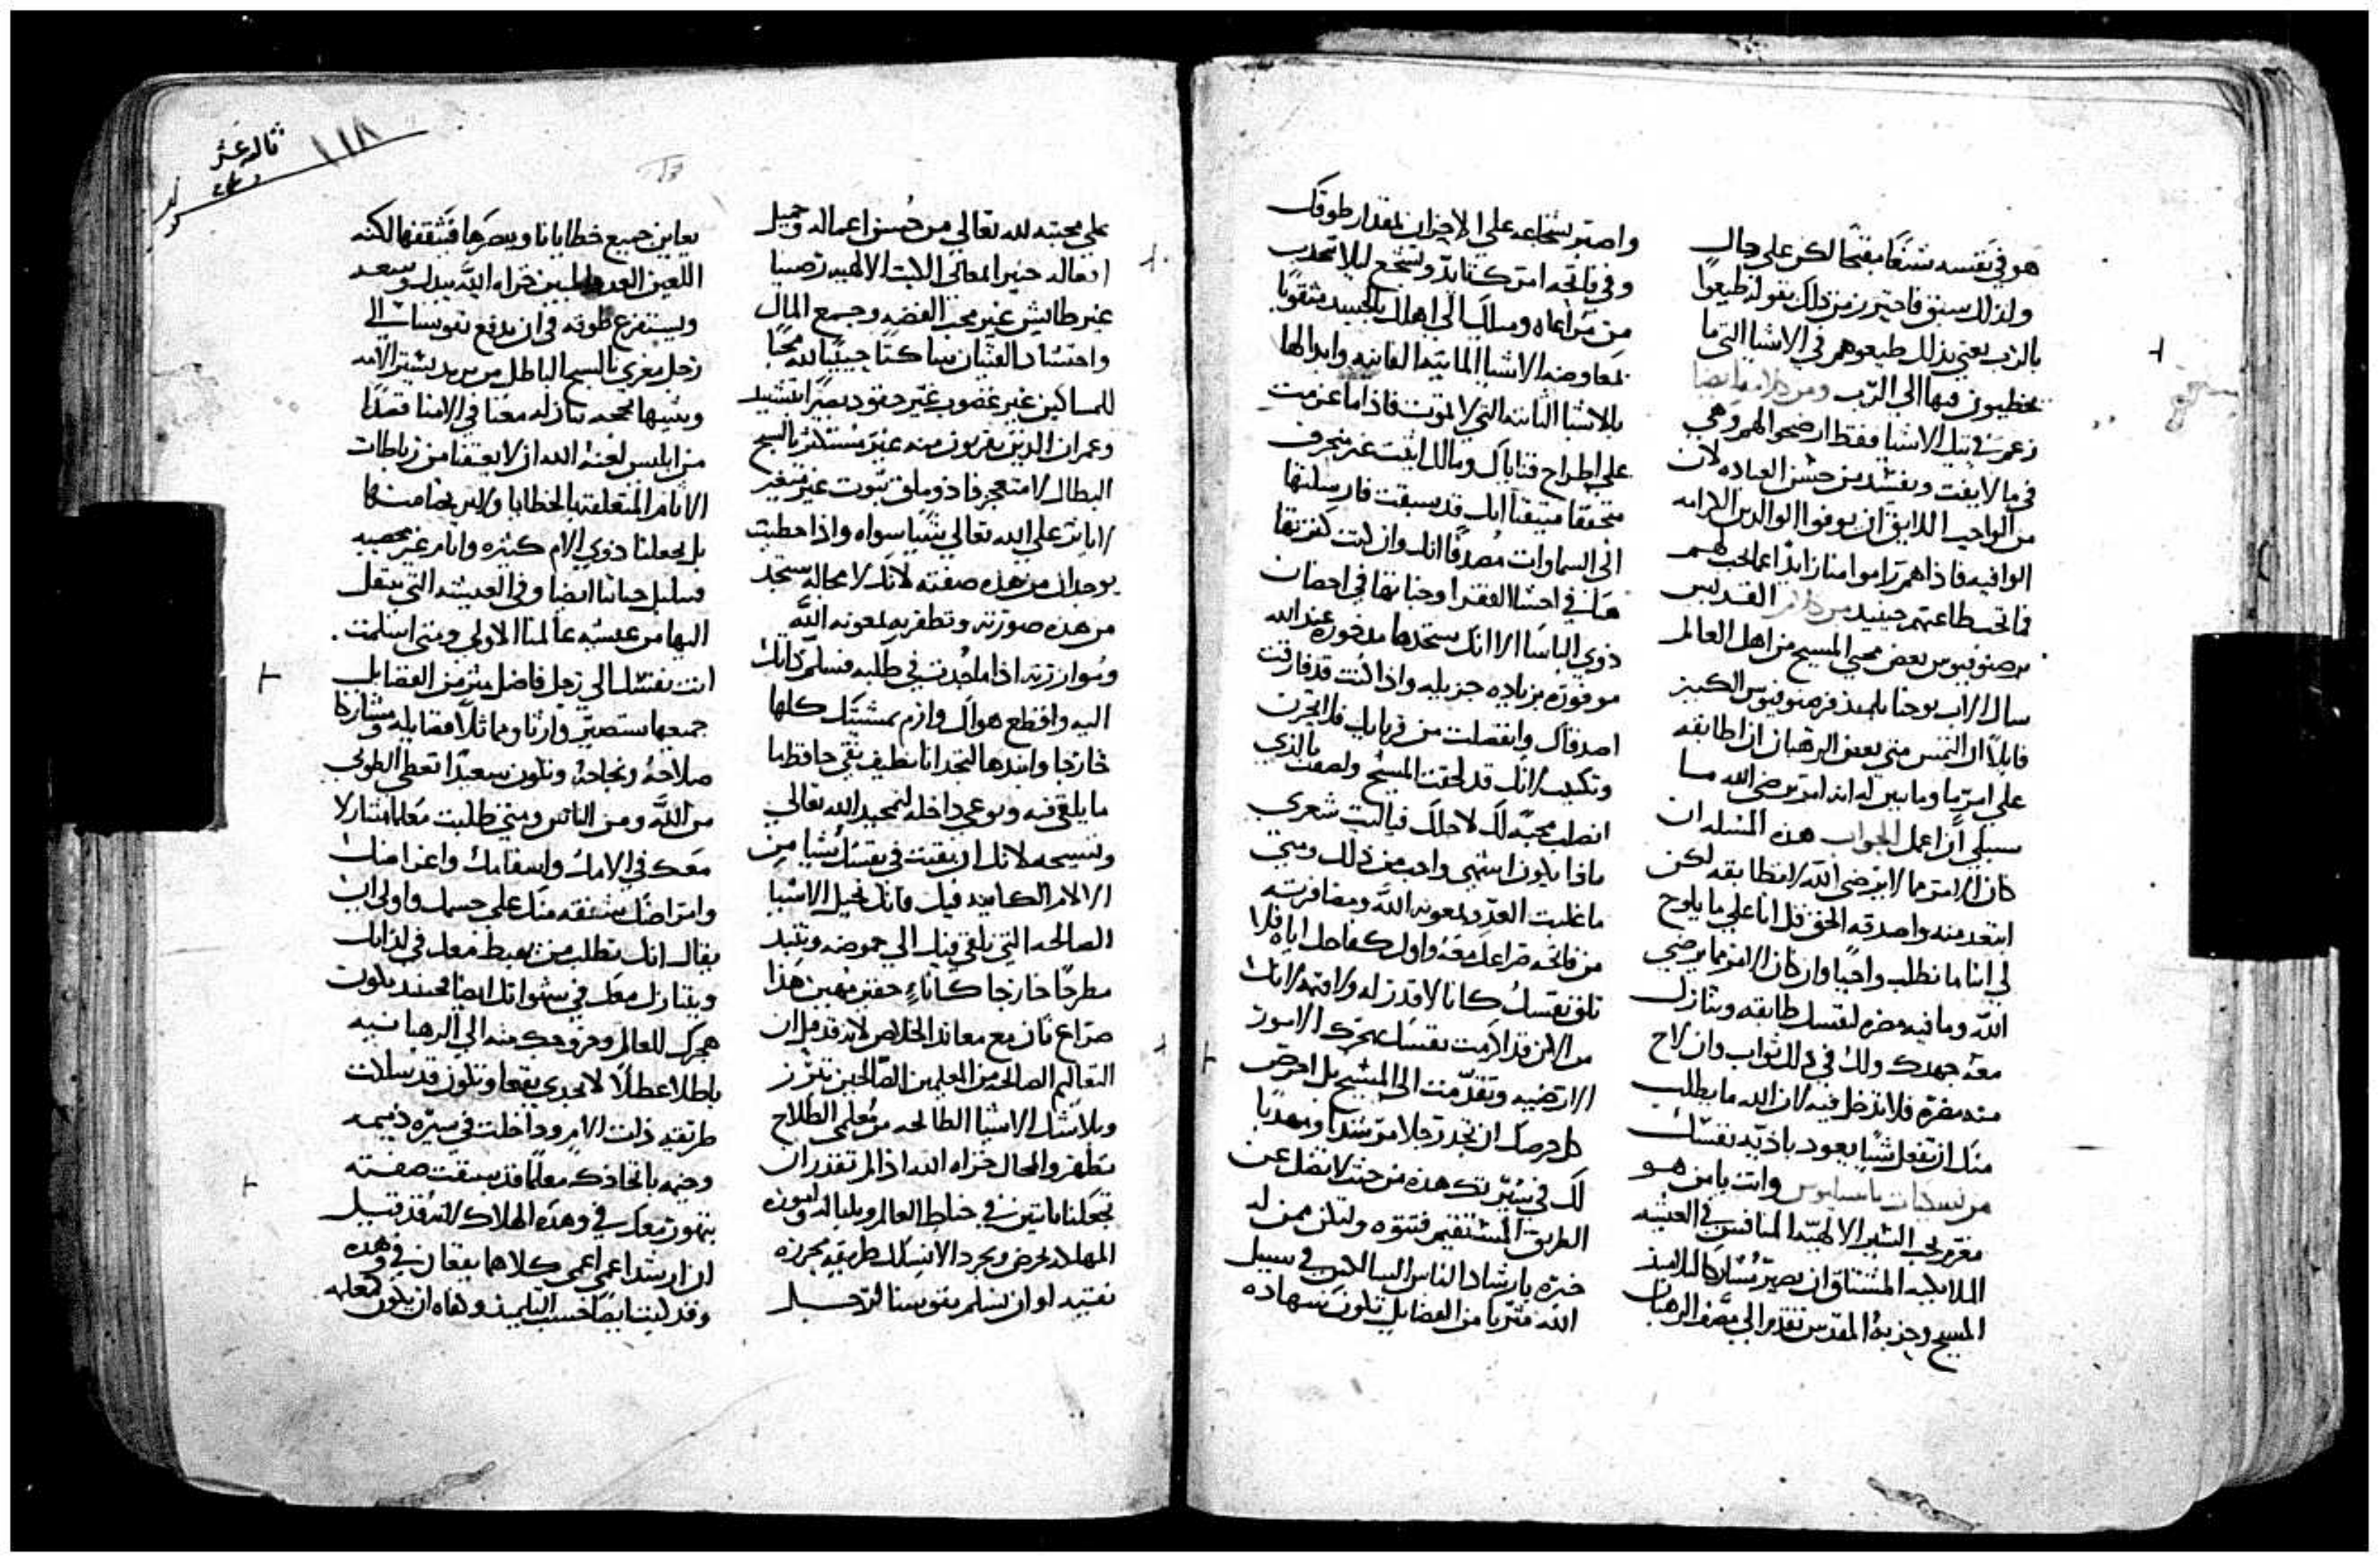 هو في نفسه شنعًا مفتحًا لكن على حال
ولذلك سبق فاحترز من ذلك بقوله طيعوا
بالرب يعني بذلك طيعوهم في الاشيا التي ما
يخطيون فيها الى الرب ومن ايضا
في تيك الاشيا فقط ارضحوا لهم وهي
في ما لا يفت ويفسد من حسن العباده لان
من الواجب اللايق ان يوفوا الوالدين الكرامه
الوافيه فاذا هم راموا منا زايدًا عما يجب لهم
فما تجب طاعتهم حينيد من القديس
برصنوفيوس بعض محبي المسيح من اهل العالم
سال الاب يوحنا تلميذ برصنوفيوس الكبير
قايلاً ان التمس مني بعض الرهبان ان اطابقه
على امر ما وما يبين لي انه امر يرضي الله ما
سبيلي ان اعمل الجواب هذه المسله ان
كان الامر مما لا يرضي الله لا تطابقه لكن
ابتعد منه واصدقه الحق قل انا على ما يلوح
لي اننا ما نطلب واجبًا وان كان الامر مما يرضي
الله وما فيه مضره لنفسك طابقه وتنازل
معه جهدك ولك في ذلك ثواب وان لاح
منه مضره فلا تدخل فيه لان الله ما يطلب
منك ان تفعل شيًا يعود باذيه نفسك
من نسكيات باسيليوس وانت يا من هو
مغرم بحب السير الالهيه المنافس في العيشه
الملايكيه المشتاق ان يصير مشاركًا لتلاميذ
المسيح وحزبه المقدس تقدم الى مصف الرهبان
واصبر بشجاعه على الاحزان بمقدار طوقك
وفي فاتحه امرك تايد وتشجع ليلا تنجذب
من مراعاه وميلك الى اهلك بالجسد متقويًا
بمعاوضه الاشيا المايته الفانيه وابدالها
بالاشيا الثابته التي لا تموت فاذا ما عزمت
على اطراح قناياك ومالك اثبت غير منحرف
متحققًا متيقنًا انك قد سبقت فارسلتها
الى السماوات مصدقًا انك وان كنت كنزتها
هنا في احشا الفقرا وخباتها في احضان
ذوي الباسا الا انك ستجدها مذخوره عند الله
موفوره بزياده جزيله واذا كنت قد فارقت
اصدقاك وانفصلت من قرباك فلا تحزن
وتكتيب لانك قد لحقت المسيح ولصقت بالذي
انصلب محبه لك لاجلك فياليت شعري
ماذا يكون اشهى واحب من ذلك ومتى
ما غلبت العدو بمعونه الله ومضافرته
من فاتحه صراعك معه واول كفاحك اياه فلا
تلق نفسك كانا لا قدر له ولا قيمه لانك
من الان قد الزمت نفسك بترك الامور
الارضيه وتقدمت الى المسيح بل احرص
كل حرصك ان تجد رجلاً مرشدًا ومهديًا
لك في سيرتك هذه من حيث لا تضل عن
الطريق المستقيم فتتوه وليكن ممن له
خبره بارشاد الناس السالكين في سبيل
الله مثريًا من الفضايل تكون شهاده
على محبته لله تعالى من حسن اعماله وجميل
افعاله خبير المعالي الايات الالهيه رصينًا
غير طايش غير محب الفضه وجمع المال
واحتشاد القنيان ساكتًا حبيبًا لله محبًا
للمساكين غير غضوب غير حقود بصيرًا بتشييد
وعمران الذين يقربون منه غير مستكثر بالسبح
البطال لا متعجرفًا ذو ملق ثبوت غير متغير
لا يوثر على الله تعالى شيًا سواه واذا حظيت
بوجدان من هذه صفته لانك لا محاله ستجد
من هذه صورته وتظفر به بمعونه الله
وموازرته اذا ما جدت في طلبه فسلم ذاتك
اليه واقطع هواك وارم بمشيتك كلها
خارجًا وانبدها لتجد انا نظيف نقي حافظًا
ما يلقى فيه ويوعى داخله لتمجيد الله تعالى
وتسبيحه لانك ان بقيت في نفسك شيًا من
الالام الكامينه فيك فانك تحيل الاشيا
الصالحه التي تلقى فيك الى حموضه وتنبد
مطرحًا خارجًا كاناء حقير مهين هذا
صراع ثان مع معاند الخلاص لانه قد قيل ان
التعاليم الصالحه من المعلمين الصالحين تبرز
وبلا شك الاشيا الطالحه من معلمي الطلاح
تظهر والمحال خزاه الله اذا لم تقدر ان
تجعلنا ثابتين في خباط العالم وبلباله وامورهُ
المهلكه نحرض ويجرد الا نسلك طريقه محرزه
مفتيه او ان نسلم نفوسنا لرجل
يعاين جميع خطايانا ويبصرها فيثقفها لكنه
اللعين العدو اخزاه الله يبدل وسعه
ويستفرغ طوقه في ان يدفع نفوسنا الى
رجل مغرى بالسبح الباطل من يريد يستر الامه
ويشبها بحجه تنازله معنا في الامنا قصدًا
من ابليس لعنه الله ان لا يعتقنا من رباطات
الاثام المتعلقه بالخطايا ولا يريحنا منها
بل يجعلنا ذوي الام كثيره واثام غير محصيه
فسلبل حياتنا ايضًا وفي العيشه التي ننتقل
اليها من عيشه عالمنا الاولى ومتى اسلمت
انت نفسك الى رجل فاضل مثر من الفضايل
جميعها ستصير وارثًا ومماثلاً فضايله ومشاركًا
صلاحه ونجاحه وتكون سعيدًا تعطى الطوبى
من الله ومن الناس ومتى طلبت معلمًا متنازلاً
معك في الامك واسقامك واعراضك
وامراضك شفقه منك على جسمك فاولى ان
يقال انك تطلب من يهبط معك في لذاتك
ويتنازل معك في شهواتك ايضًا فحينيد يكون
هجرك للعالم وخروجك منه الى الرهبانيه
باطلاً عطلاً لا تجدي نفعًا وتكون قد سلكت
طريقه ذات الام ودخلت في سيره ذميمه
وخيمه باتخاذك معلمًا قد سبقت صفته
يتهور معك في وهده الهلاك لانه قد قيل
ان ارشد اعمى اعمى كلاهما يقعان في وهده
وقد كتب ايضًا حسب التلميذ وكفاه ان يكون كمعلمه
ثالث عشر
١١٨